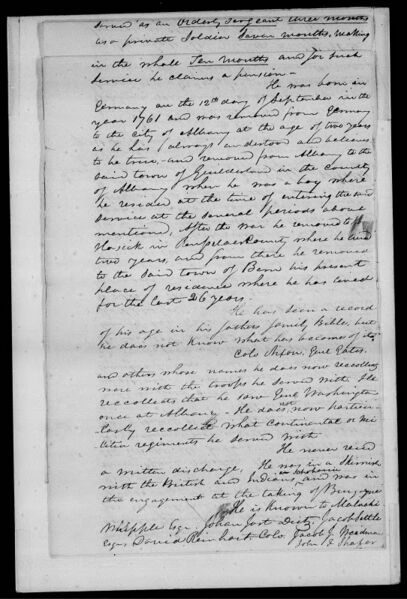 served as an Orderly Sergeant three months
as a private Soldier Seven months, making
in the whole Ten months and for such
service he claims a pension -
He was born in
Germany on the 12th day of September in the
year 1761 and was removed from Germany
to the city of Albany at the age of two years
as he has always understood and believes
to be true, and removed from Albany to the
said town of Guilderland in the county
of Albany when he was a boy where
he resided at the time of entering the said
service at the several periods above
mentioned, After the war he removed to
Hosick in Rensselaer County where he lived
two years, and from there he removed
to the said town of Bern his present
place of residence where he has lived
for the last 26 years.
He has seen a record
of his age in his fathers family Bible, but
he does not know what has become of it,
Colo Nixon, Genl Gates,
and others whose names he does now recollect
were with the troops he served with. He
recollects that he saw Genl Washington
once at Albany - He does not now particu-
larly recollect what continental or mi-
litia regiments he served with
He never recd
a written discharge, He was in a Skirmish
with the British and Indians, and was in
the engagement at the taking of Burgoyne
He is known to Malachi
Whipple Esqr. Johan Jost Deitz, Jacob Settle
Esqr, David Reinhart Colo. Jacob J. Weidman
John J. Shafer